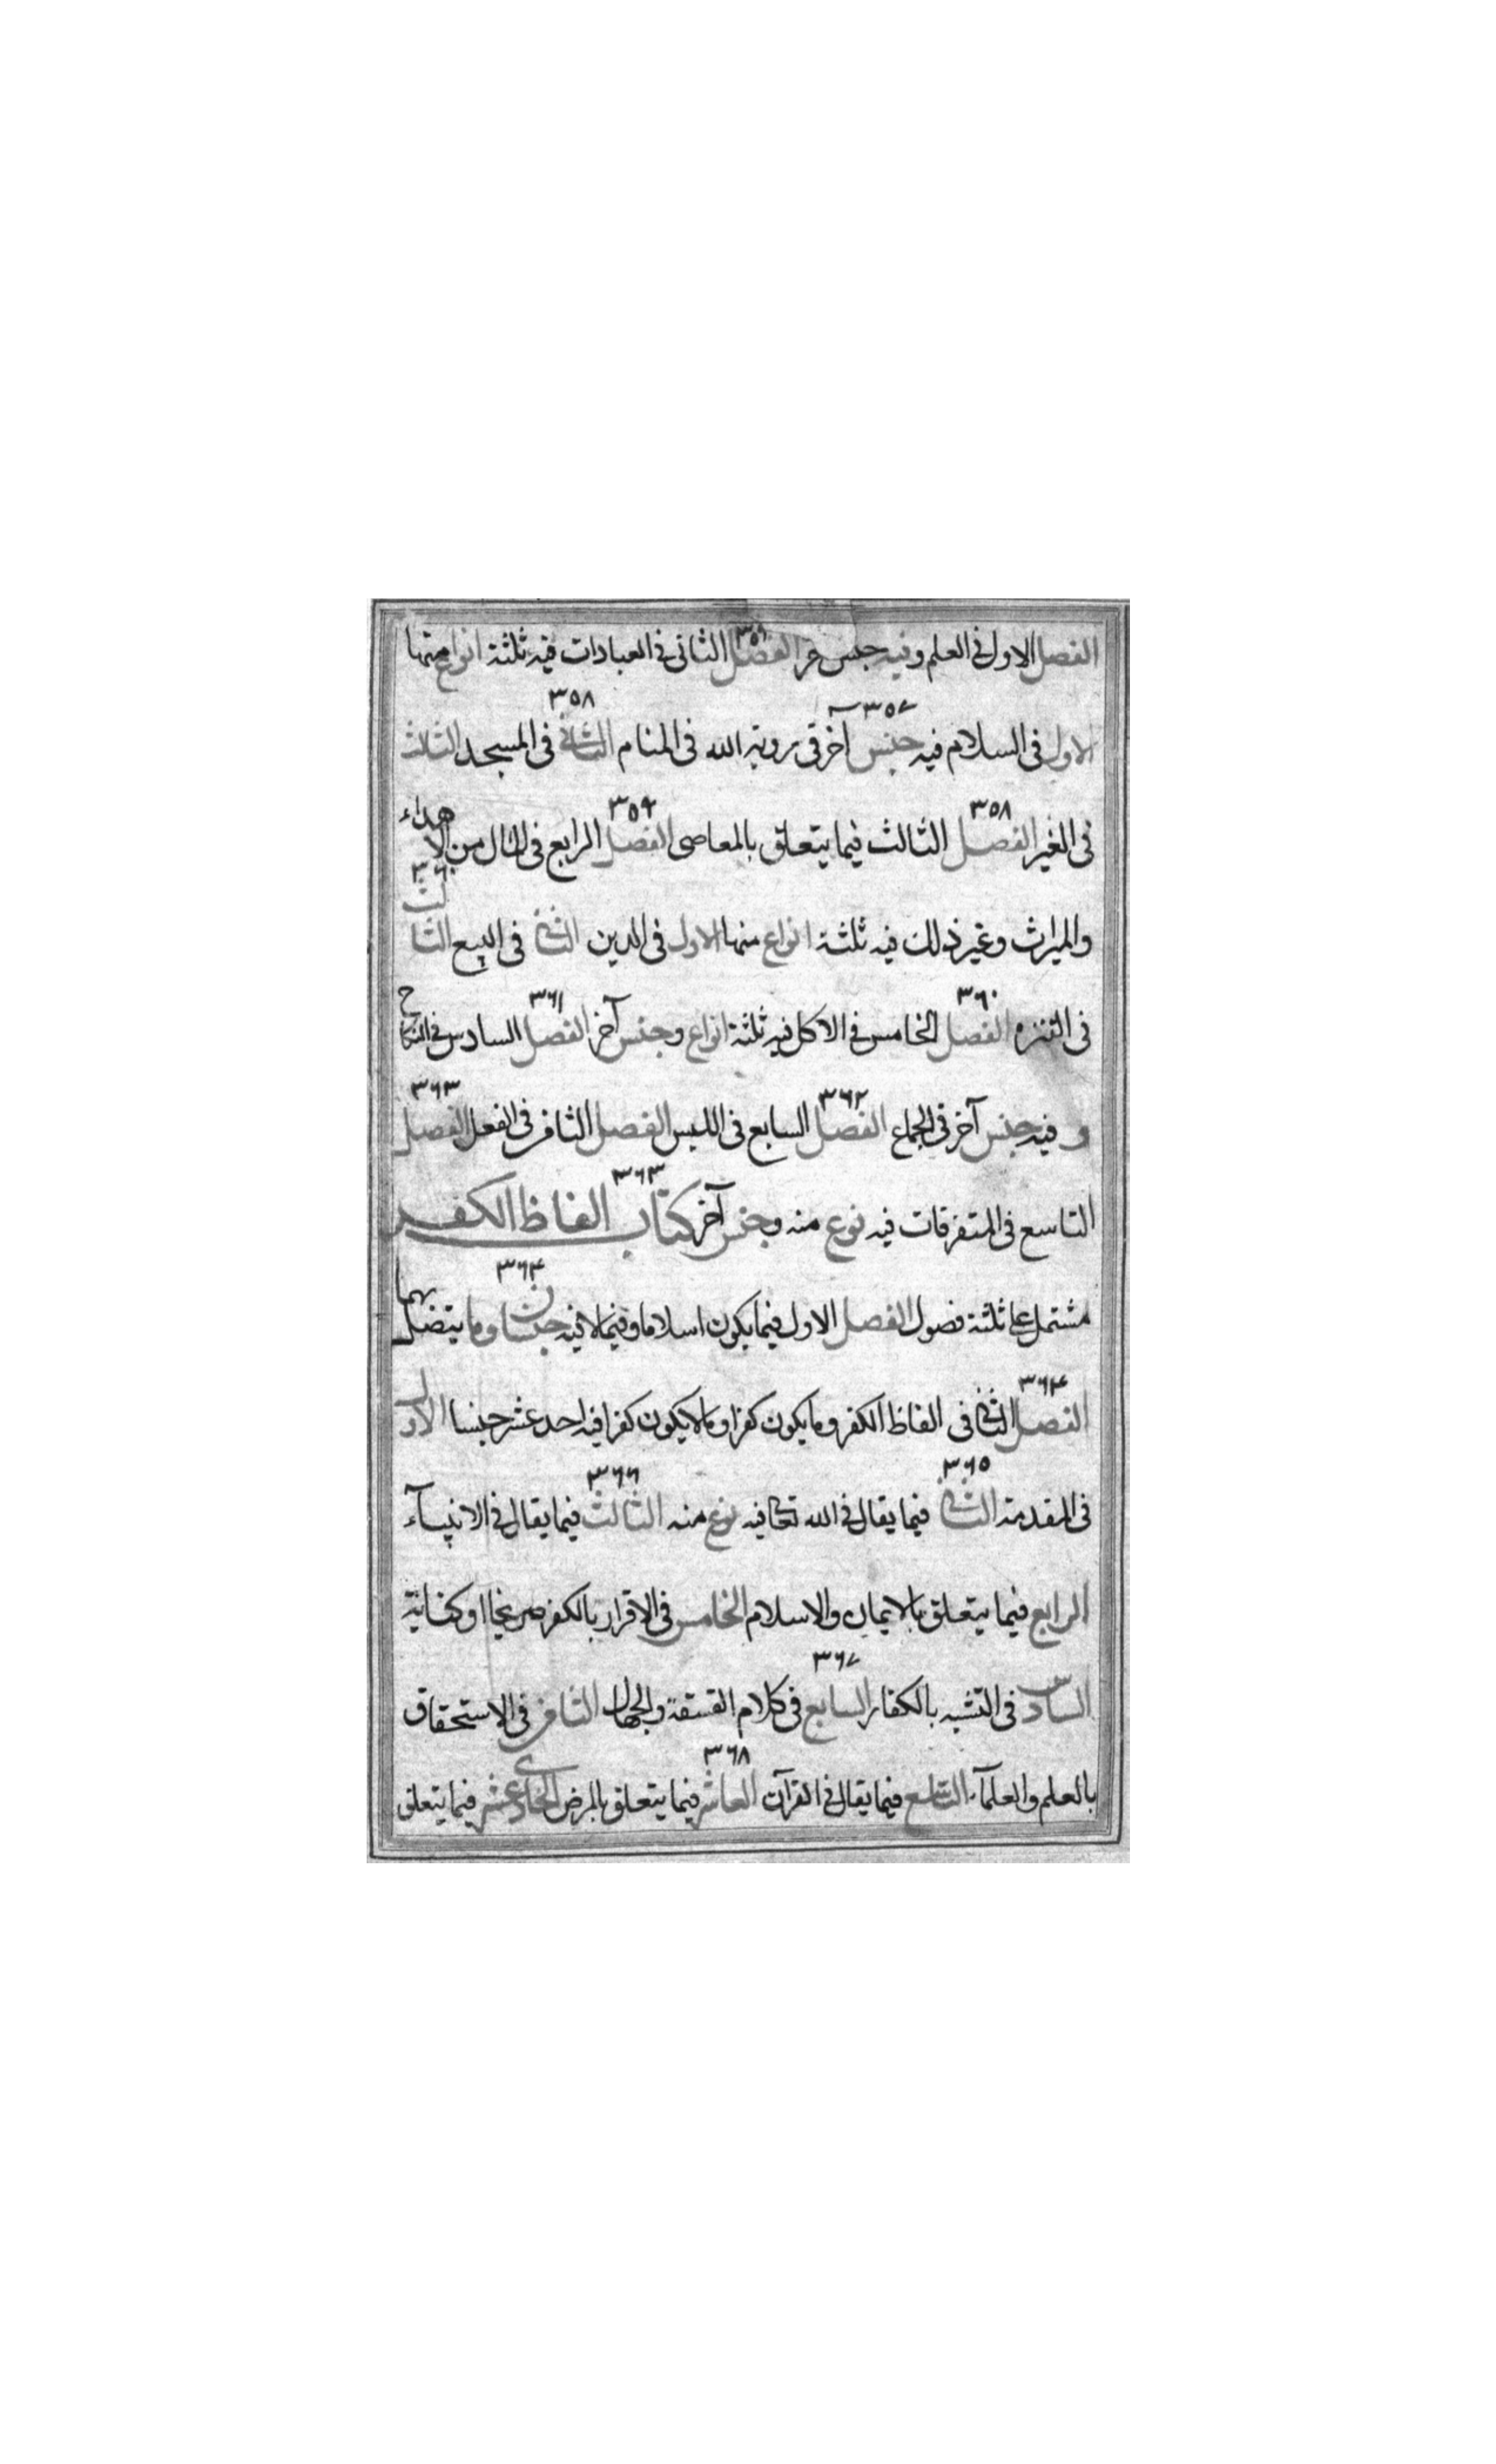 الفصل الاول فى العلم وفيه جنس خر الفصل الثانى فى العبادات فيه ثلثة انواع منها
٣٥٧ ٣٥٨
الاول فى السلام فيه جنس آخر فى روية الله فى المنام الثانى فى المسجد الثالث
٣٥٨ ٣٥٩
فى الغير الفصل الثالث فيما يتعلق بالمعاصى الفصل الرابع فى المال من الاهداء
٣٦٠
والميراث وغير ذلك فيه ثلثة انواع منها الاول فى الدين الثانى فى البيع الثالث
٣٦٠ ٣٦١
فى التنزه الفصل الخامس فى الاكل فيه ثلثة انواع وجنس آخر الفصل السادس فى النكاح
٣٦٢ ٣٦٣
و فيه جنس آخر فى الجماع الفصل السابع فى اللبس الفصل الثامن فى الفعل الفصل
٣٦٣
التاسع فى المتفرقات فيه نوع منه وجنس آخر كتاب الفاظ الكفر
٣٦٤
مشتمل على ثلثة فصول الفصل الاول فيما يكون اسلاما وفيما لا فيه جنسان وما يتصل بهما
٣٦٤
الفصل الثانى فى الفاظ الكفر وما يكون كفرا وما لا يكون كفرا فيه احد عشر جنسا الاول
٣٦٥ ٣٦٦
فى المقدمة الثانى فيما يقال فى الله تعالى فيه نوع منه الثالث فيما يقال فى الانبيآء
الرابع فيما يتعلق بالايمان والاسلام الخامس فى الاقرار بالكفر صريحا او كناية
٣٦٧
السادس فى التشبه بالكفار السابع فى كلام الفسقة والجهال الثامن فى الاستحقاق
٣٦٨
بالعلم والعلمآء التاسع فيما يقال فى القرآن العاشر فيما يتعلق بالمرض الحادى عشر فيما يتعلق